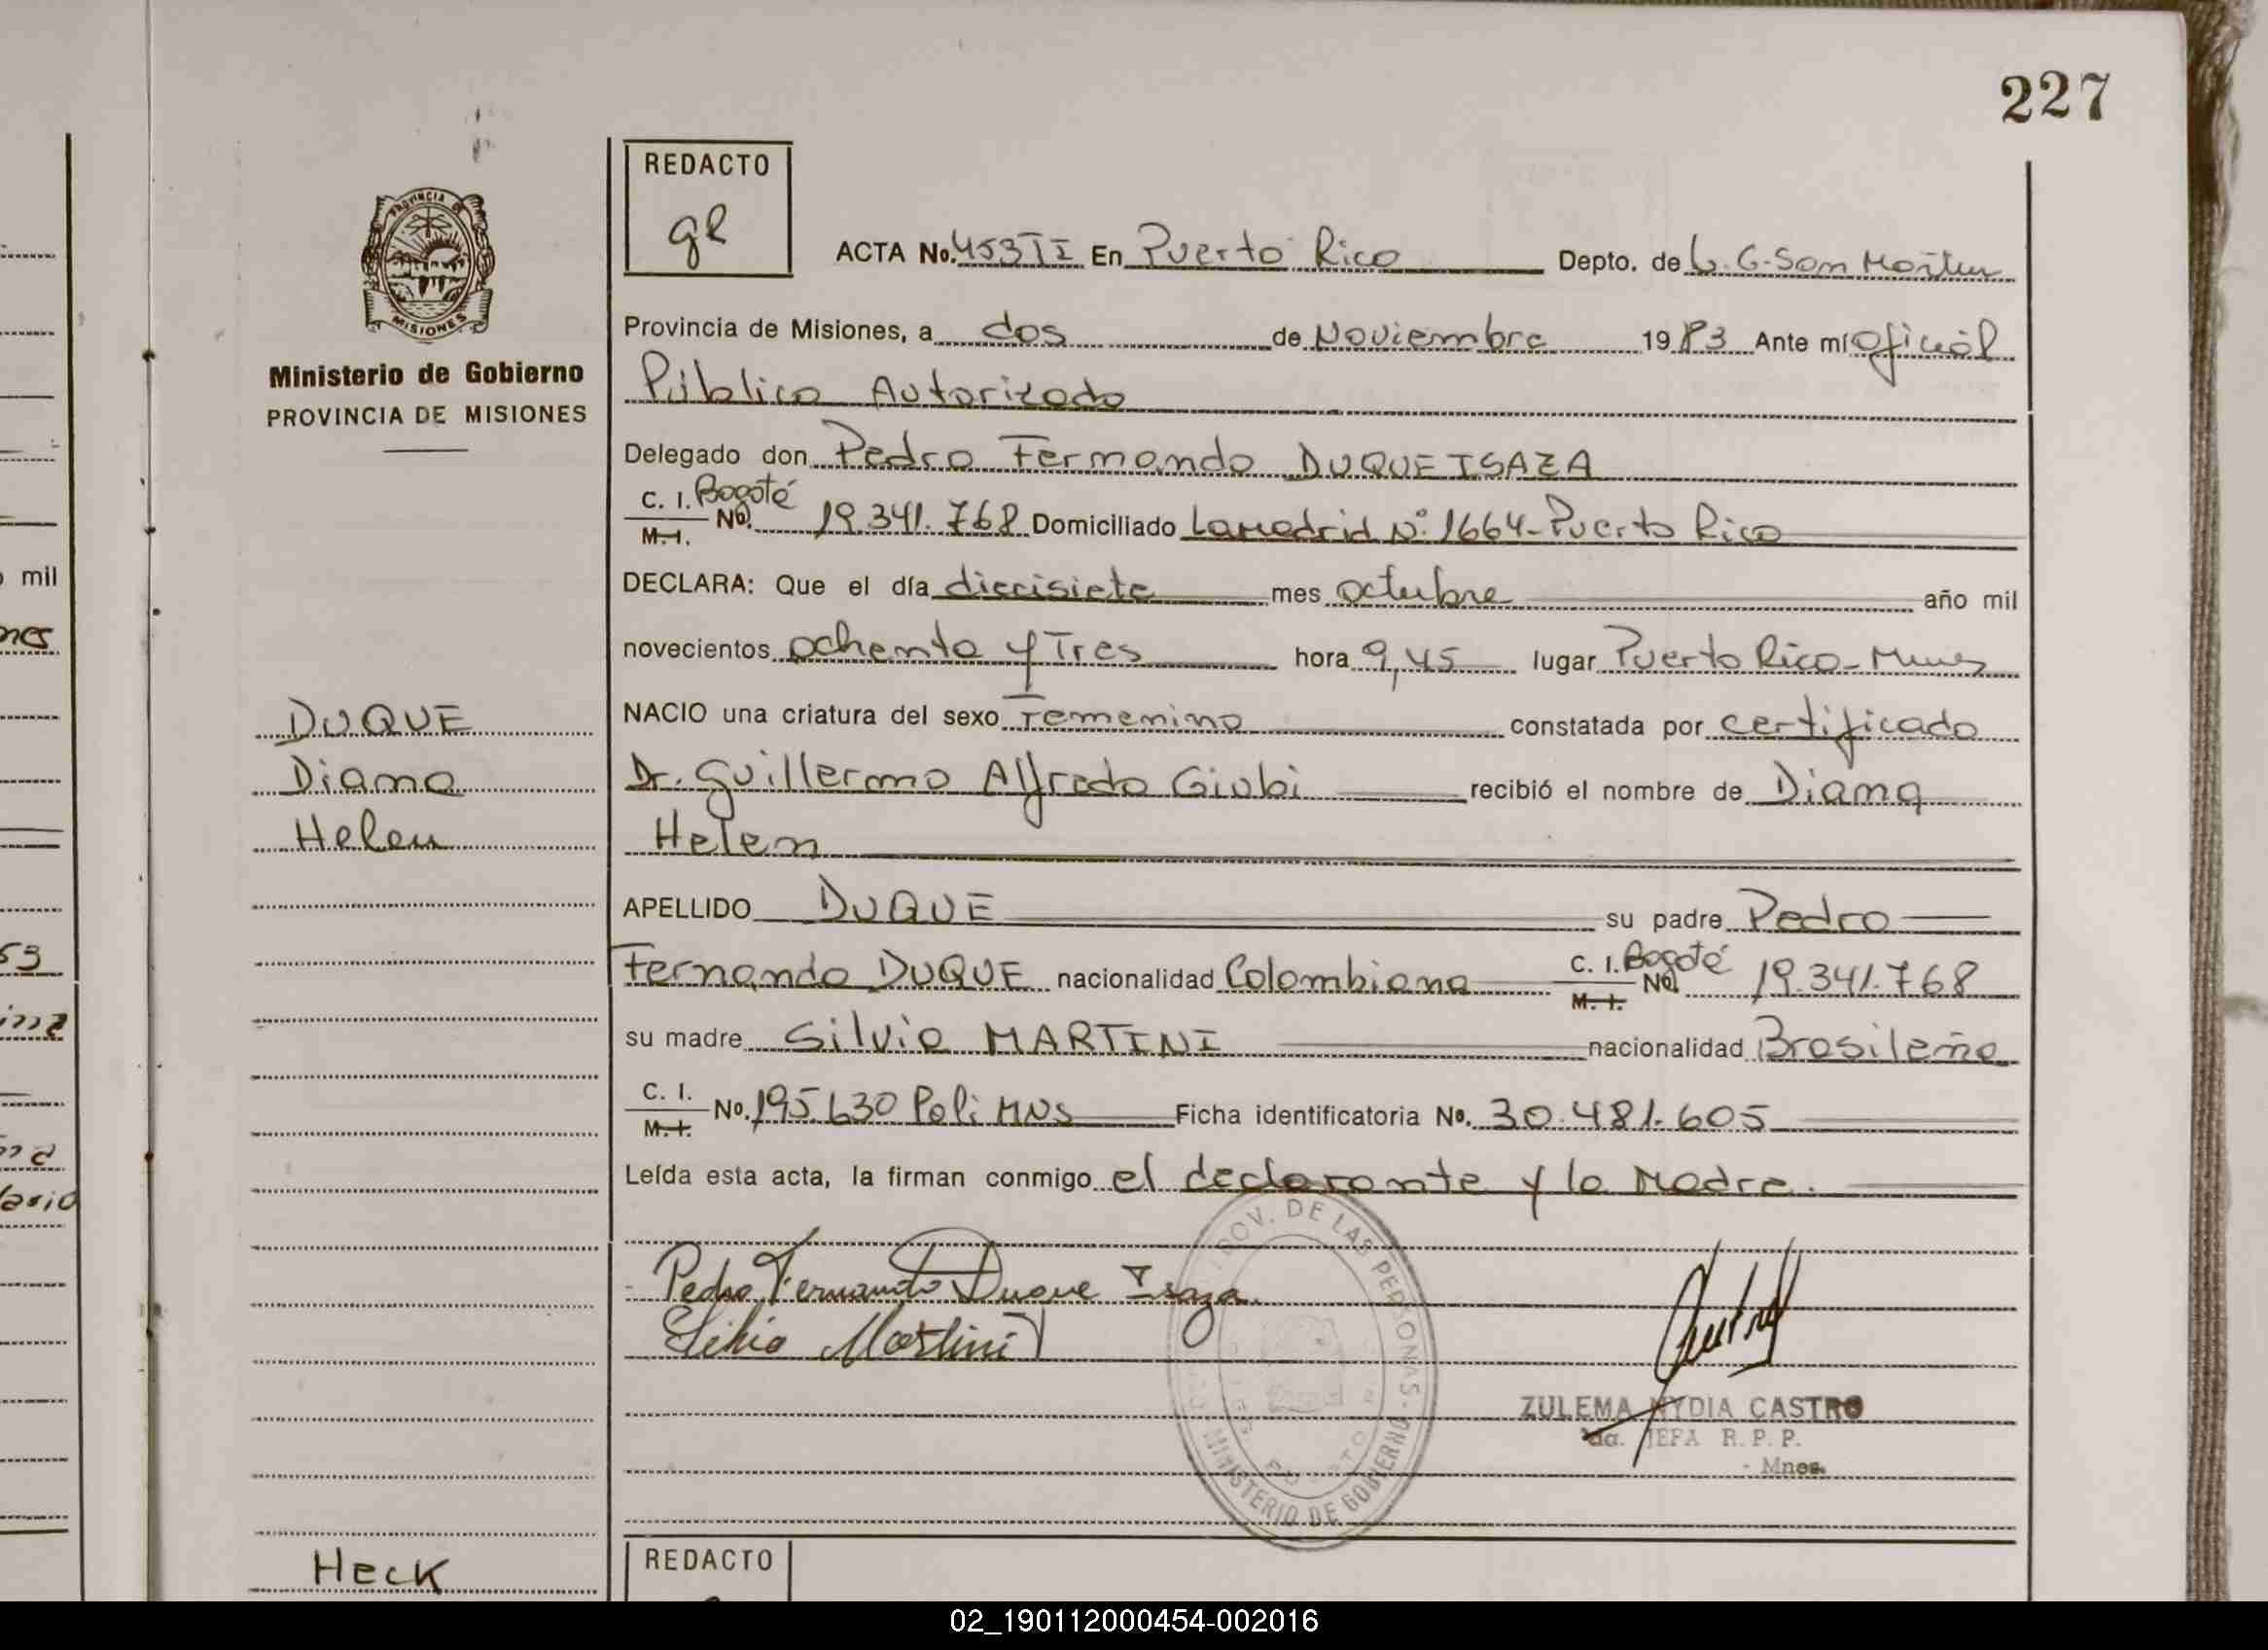 227
REDACTO
ge
ACTA No. 453 II En Puerto Rico Depto. de L. G. San Martin
Provincia de Misiones, a dos de Noviembre 1983 Ante mí oficial
Público Autorizado
Delegado don Pedro Fernando DUQUE ISAZA
C. I. Bogotá
M. I. No. 19.341.768 Domiciliado Lamadrid Nº 1664 - Puerto Rico
DECLARA: Que el día diecisiete mes octubre año mil
novecientos ochenta y Tres hora 9,45 lugar Puerto Rico - Mnes
NACIO una criatura del sexo Femenino constatada por certificado
Dr. Guillermo Alfredo Giubi recibió el nombre de Diana
Helen
APELLIDO DUQUE su padre Pedro
Fernando DUQUE nacionalidad Colombiana C. I. Bogotá M. I. No. 19.341.768
su madre Silvia MARTINI nacionalidad Brasileña
C. I. M. I. No. 195.630 Poli MNS Ficha identificatoria No. 30.481.605
Leída esta acta, la firman conmigo el declarante y la Madre.
Pedro Fernando Duque Isaza
Silvia Martini
ZULEMA NYDIA CASTRO
JEFA R. P. P.
- Mnes.
PROV. DE LAS PERSONAS - MINISTERIO DE GOBIERNO
PROVINCIA DE
MISIONES
Ministerio de Gobierno
PROVINCIA DE MISIONES
DUQUE
Diana
Helen
Heck
REDACTO
mil
nes
53
02_190112000454-002016